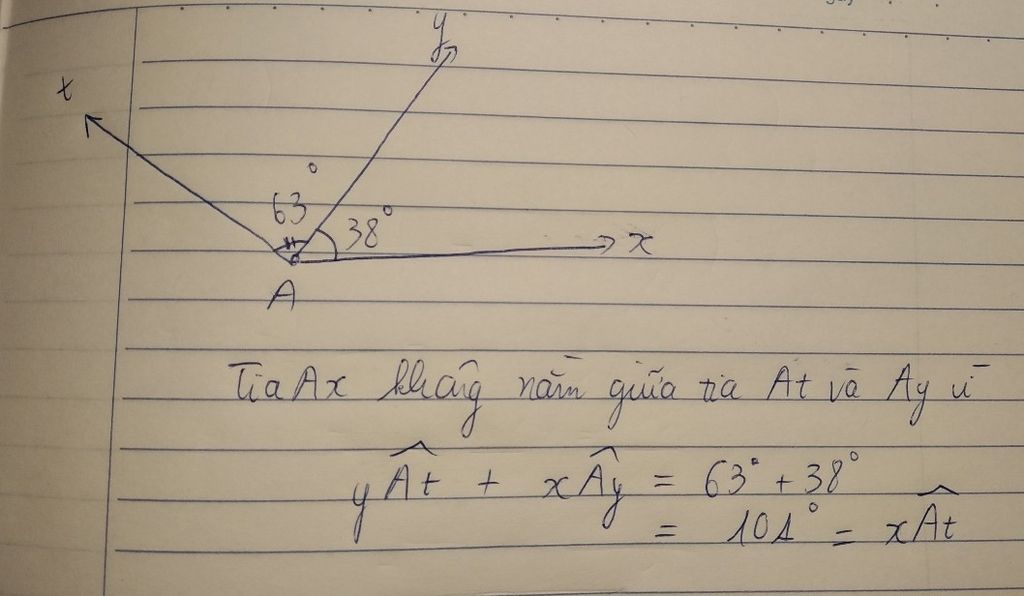 y
t
63°
38°
x
A
Tia Ax không nằm giữa tia At và Ay vì
yÂt + xÂy = 63° + 38°
= 101° = xÂt